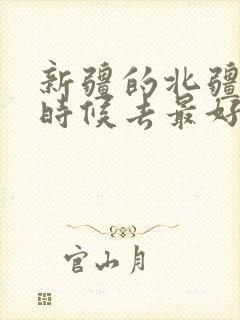 新疆的北疆
時候去最好
官山月